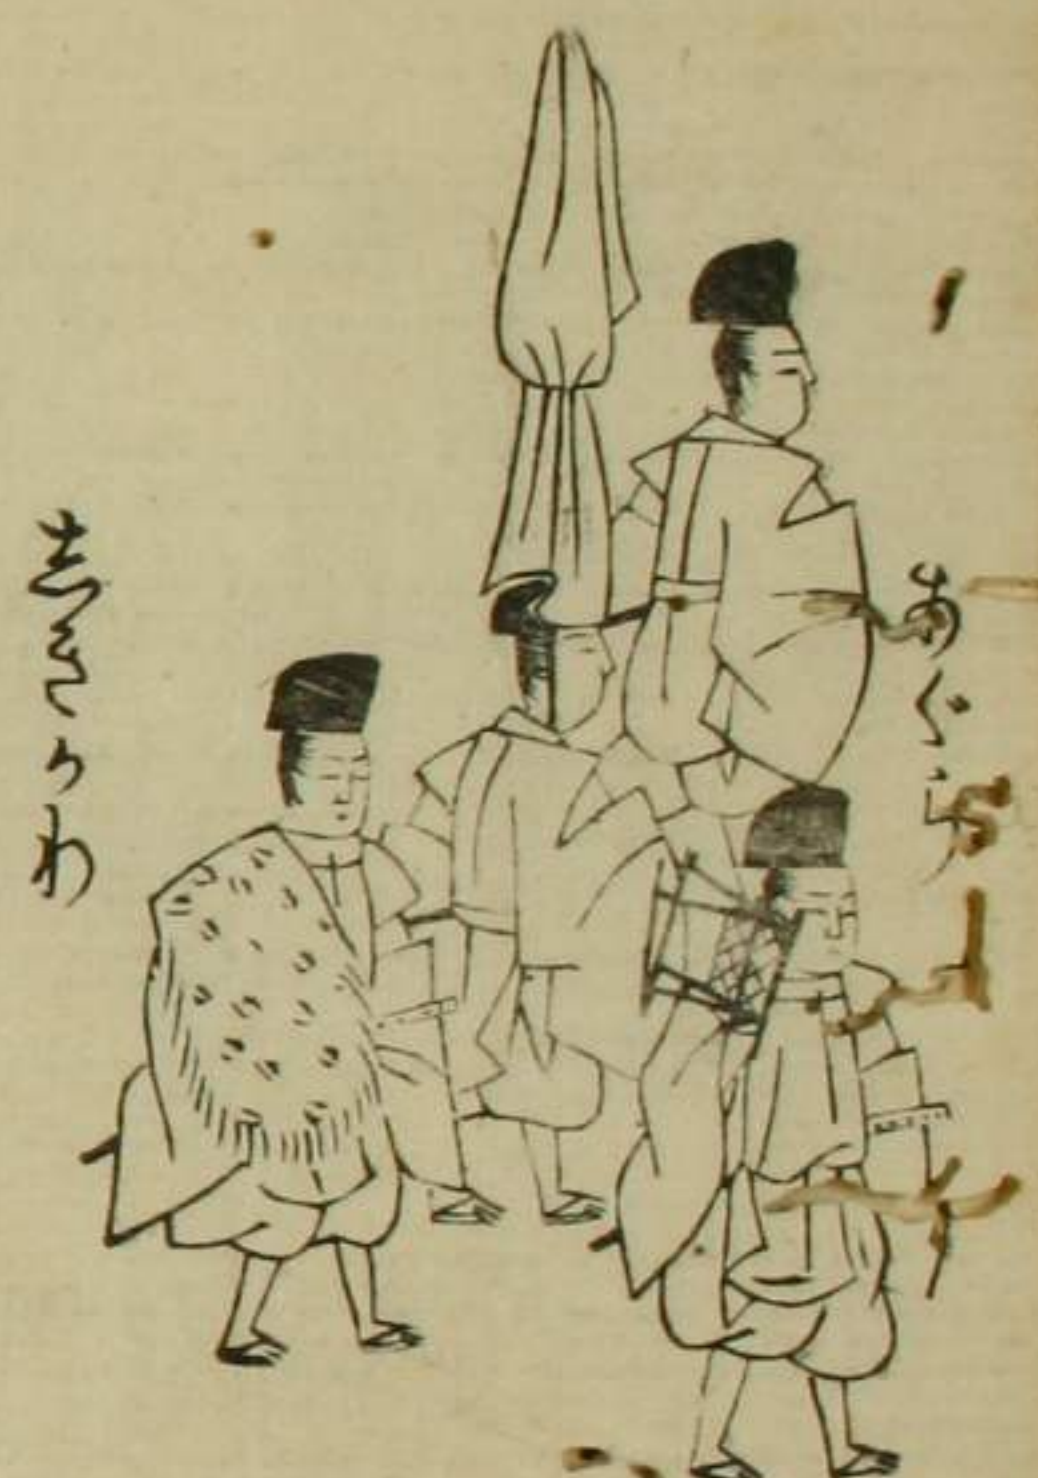 あぐら
志きかわ